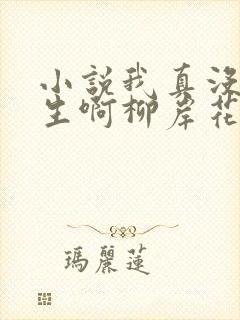 小說我真沒
生啊柳岸花
瑪麗蓮